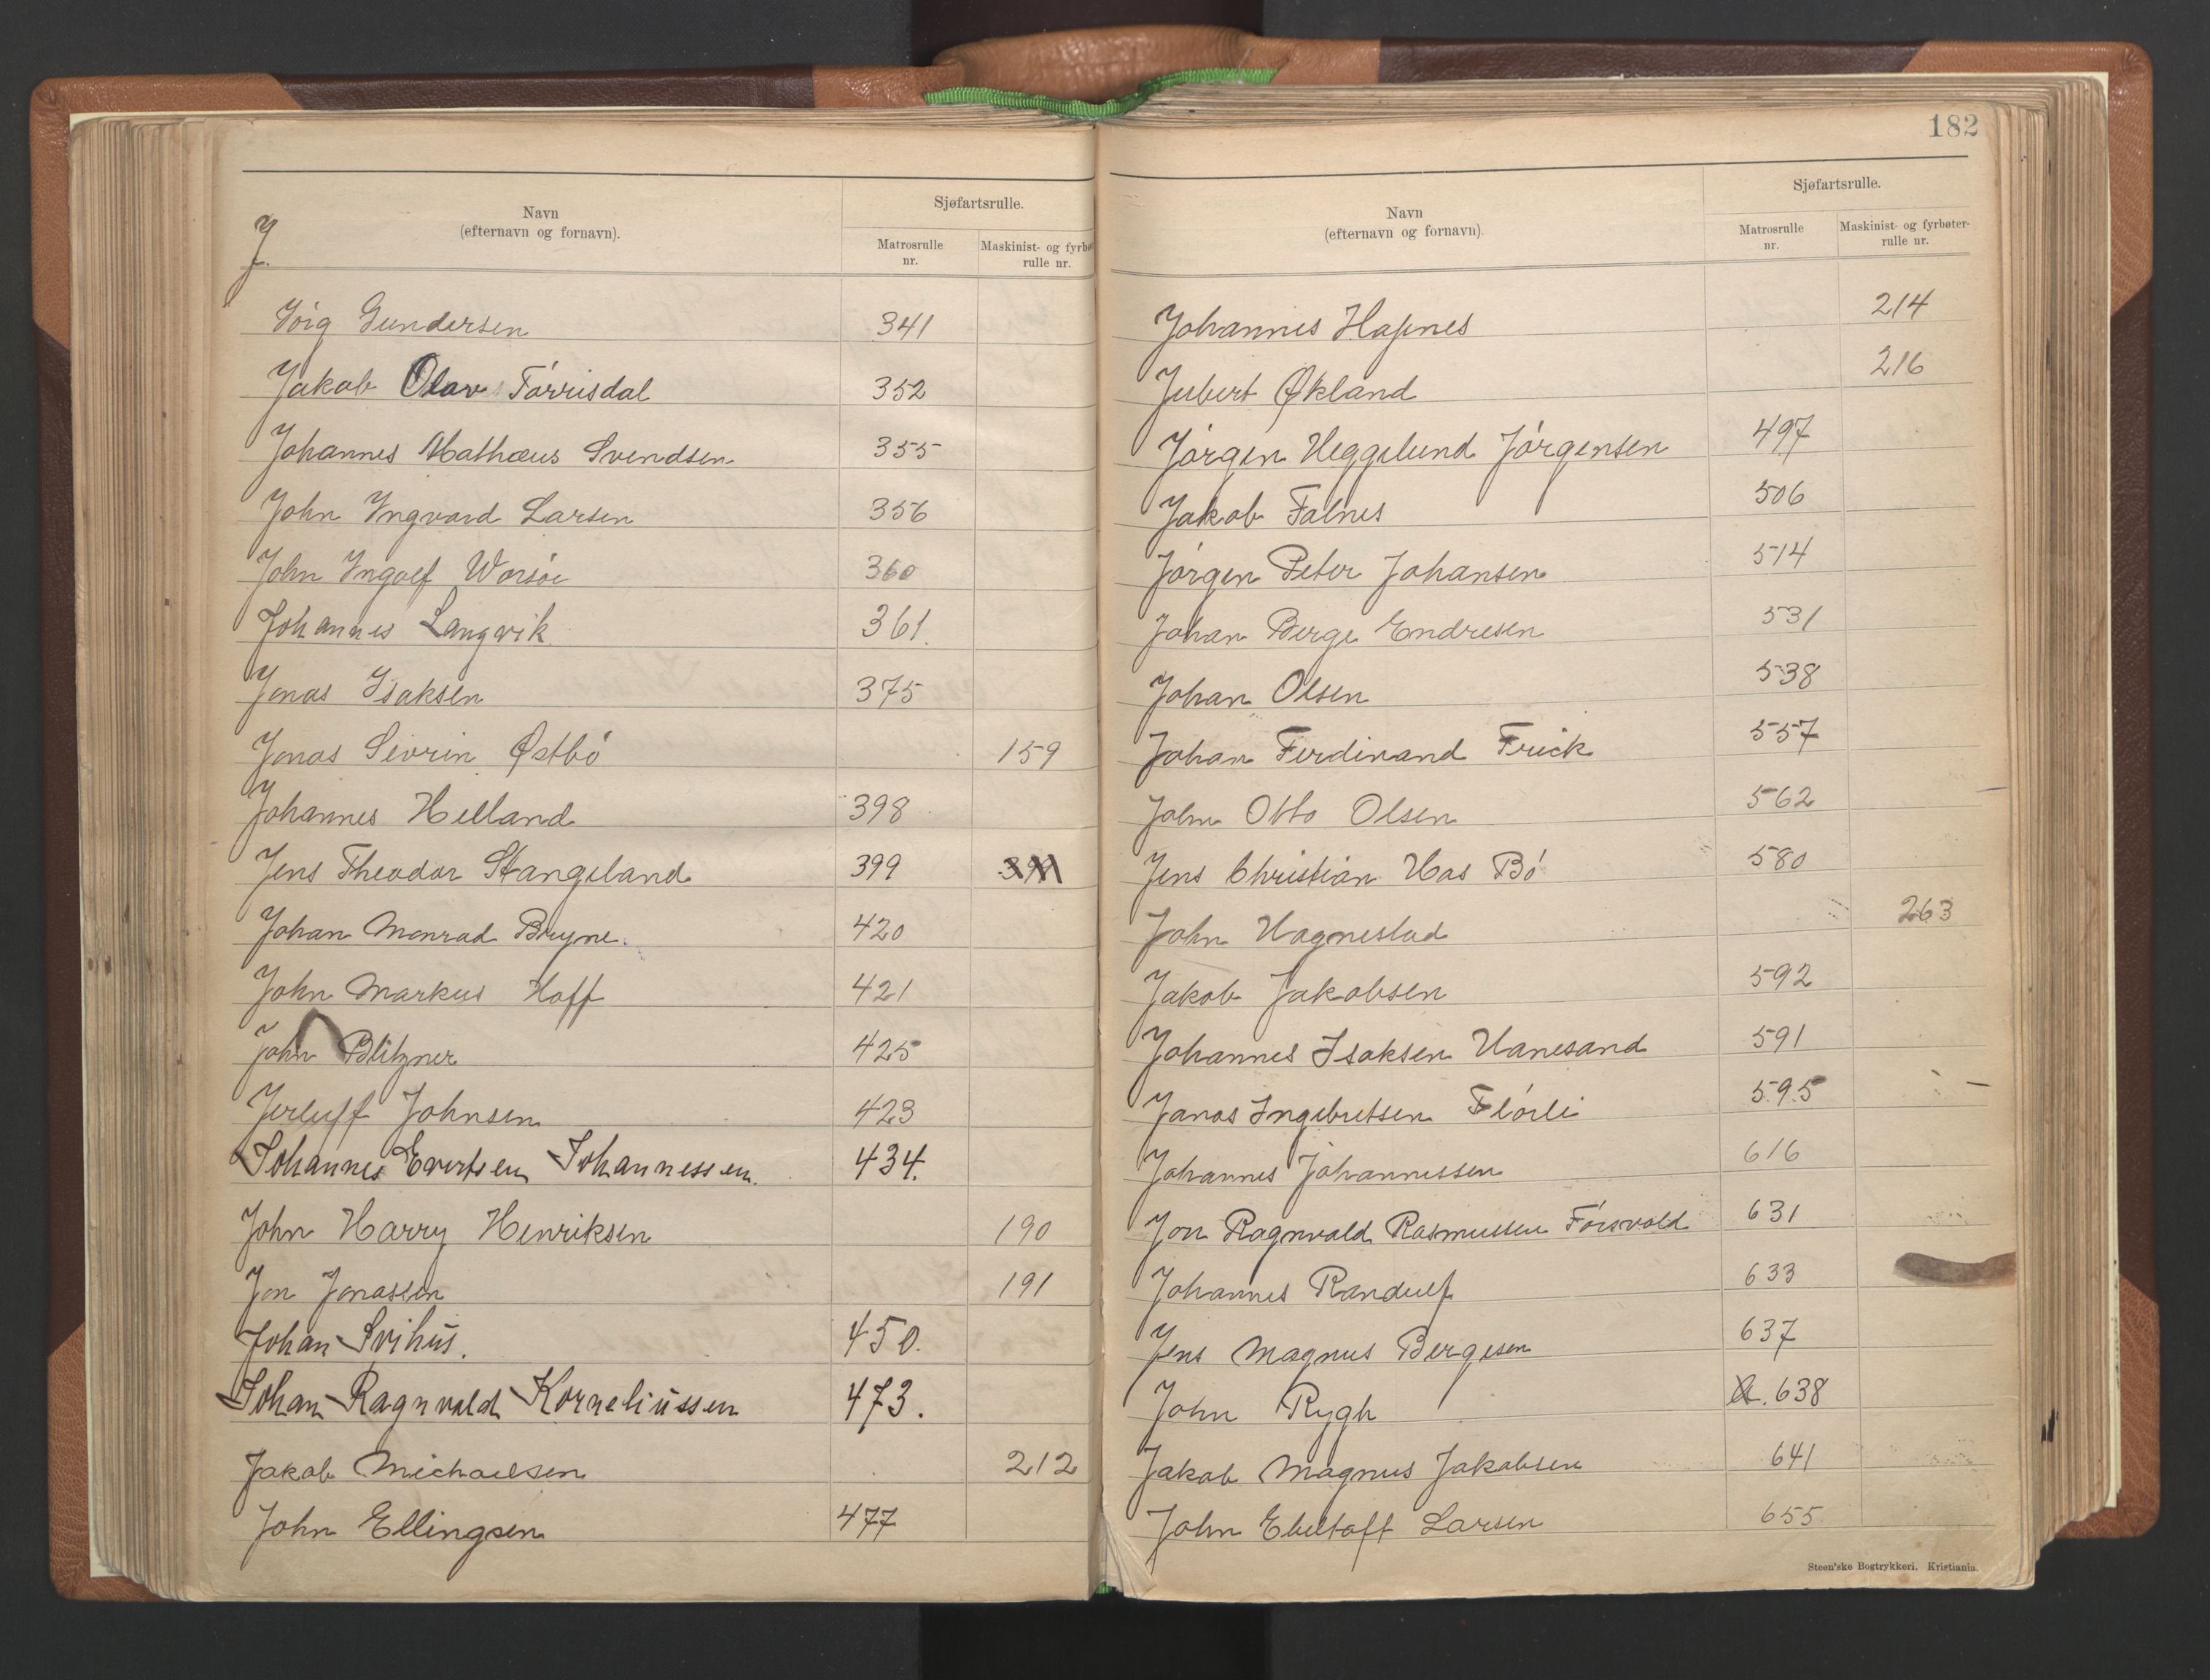 182
J.
Navn
(efternavn og fornavn).
Sjøfartsrulle.
Matrosrulle
nr.
Maskinist- og fyrbø
rulle nr.
Jörg Gundersen 341
Jakob Olav Törrisdal 352
Johannes Mathæus Svendsen 355
John Yngvard Larsen 356
John Yngolf Worsöe 360
Johannes Langvik. 361.
Jonas Isaksen 375
Jonas Sivrin Østbö 159
Johannes Helland 398
Jens Theodor Stangeland 399
Johan Monrad Bryne. 420
John Markus Hoff 421
John Blitzner 425
Jerluff Johnsen 423
Johannes Evertsen Johannessen. 434.
John Harry Henriksen 190
Jon Jonassen 191
Johan Svihus. 450.
Johan Ragnvald Korneliussen 473.
Jakob Michaelsen 212
John Ellingsen 477
Navn
(efternavn og fornavn).
Sjøfartsrulle.
Matrosrulle
nr.
Maskinist- og fyrbøter-
rulle nr.
Johannes Hapnes 214
Jubert Økland 216
Jörgen Heggelund Jörgensen 497
Jakob Falnes 506
Jörgen Peter Johansen 514
Johan Berge Endresen 531
Johan Olsen 538
Johan Ferdinand Frick 557
John Otto Olsen 562
Jens Christian Has Bö 580
John Hagnestad 263
Jakob Jakobsen 592
Johannes Isaksen Hanesand 591
Janas Ingebretsen Flörli 595
Johannes Johannessen 616
Jon Ragnvald Rasmussen Försvold 631
Johannes Randulf 633
Jens Magnus Bergesen 637
John Rygh 638
Jakob Magnus Jakobsen 641
John Ebeltoft Larsen 655
Steen'ske Bogtrykkeri. Kristiania.